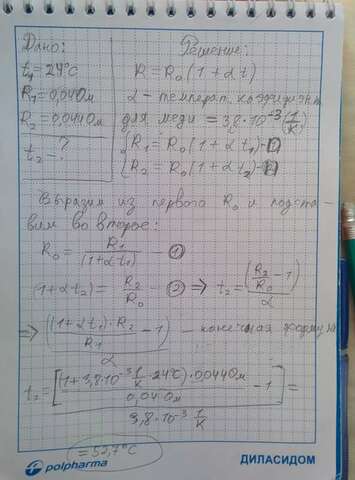 Дано:
t₁ = 24°C
R₁ = 0,040 Ом
R₂ = 0,044 Ом
t₂ - ?
Решение:
R = R₀(1 + αt)
α - температ. коэффициент
для меди = 3,8·10⁻³ (1/K)
{ R₁ = R₀(1 + αt₁) - ①
R₂ = R₀(1 + αt₂) - ②
Выразим из первого R₀ и подста-
вим во второе:
R₀ = R₁/(1+αt₁) - ①
(1+αt₂) = R₂/R₀ - ② ⇒ t₂ = (R₂/R₀ - 1)/α
⇒ ((1+αt₁)·R₂/R₁ - 1)/α - конечная формула
t₂ = [(1+3,8·10⁻³ 1/K · 24°C)·0,044 Ом/0,04 Ом - 1]/(3,8·10⁻³ 1/K) =
= 52,7°C
polpharma
ДИЛАСИДОМ